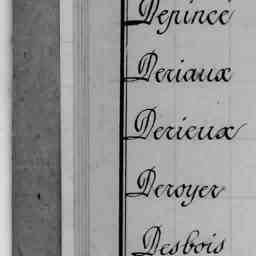 Depincé
Deriaux
Derieux
Deroyer
Desbois